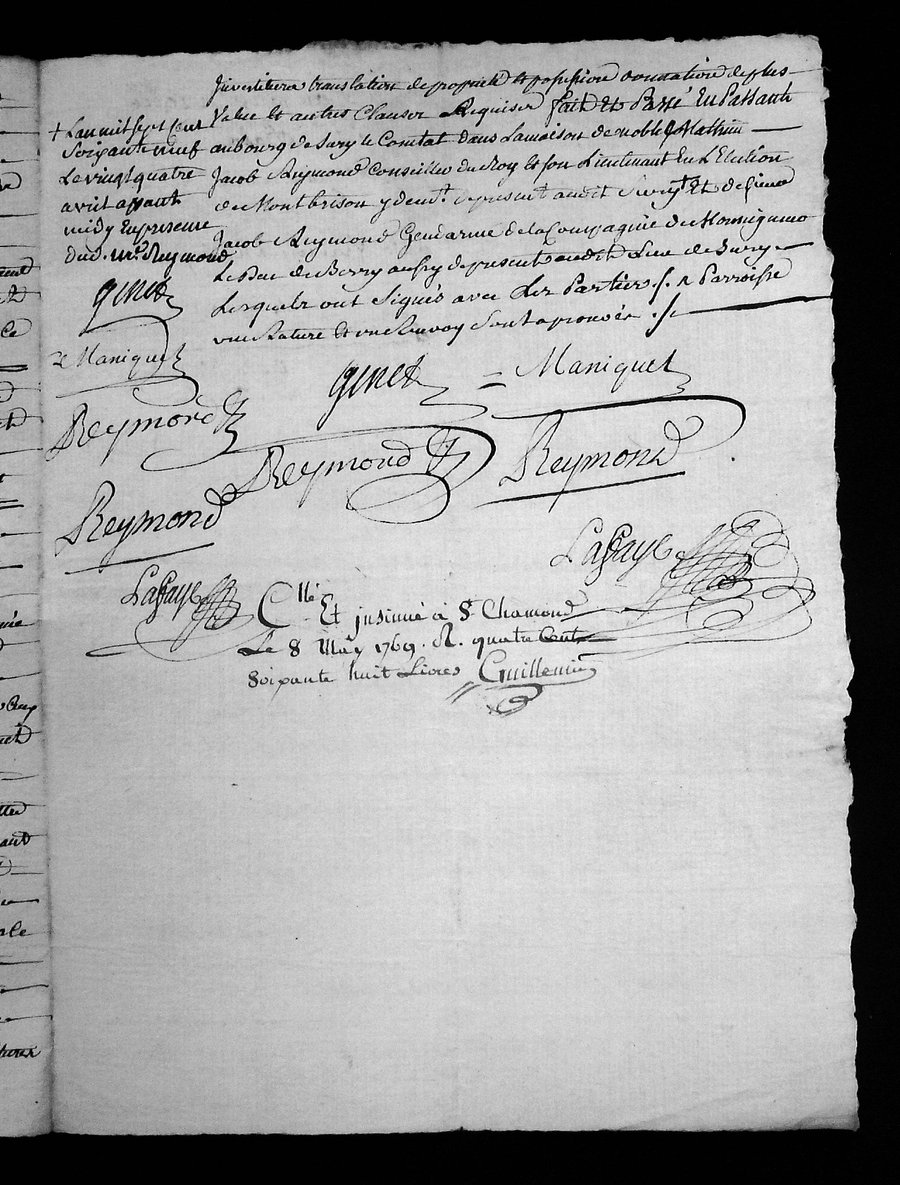 jnvestiture translation de propriété et possession donnation de plus
Value et autres Clauses Requises fait et Passé En Passant
au bourg de Sury le Comtat dans La maison de noble Mathieu
Jacob Reymond Conseiller du Roy et son Lieutenant En L'Election
de Montbrison y demt. present audit Sury et de sieur
Jacob Reymond Gendarme de la Compagnie de Monseigneur
Le Duc de Berry aussy de present audit Lieu de Sury
Lesquels ont signés avec Les Parties ./. Parroisse
une Rature et un Renvoy sont aprouvés ./.
+ Lan mil sept Cent
Soixante neuf
Le vingt quatre
avril appant
midy En presence
dud. mr. Reymond
ginet
Maniquet
Reymond
Reymond
Laffaye
ginet
Maniquet
Reymond
Reymond
Laffaye
Clle Et jnsinué à St Chamond
Le 8 May 1769. R. quatre Cent
Soixante huit Livres Guillemin